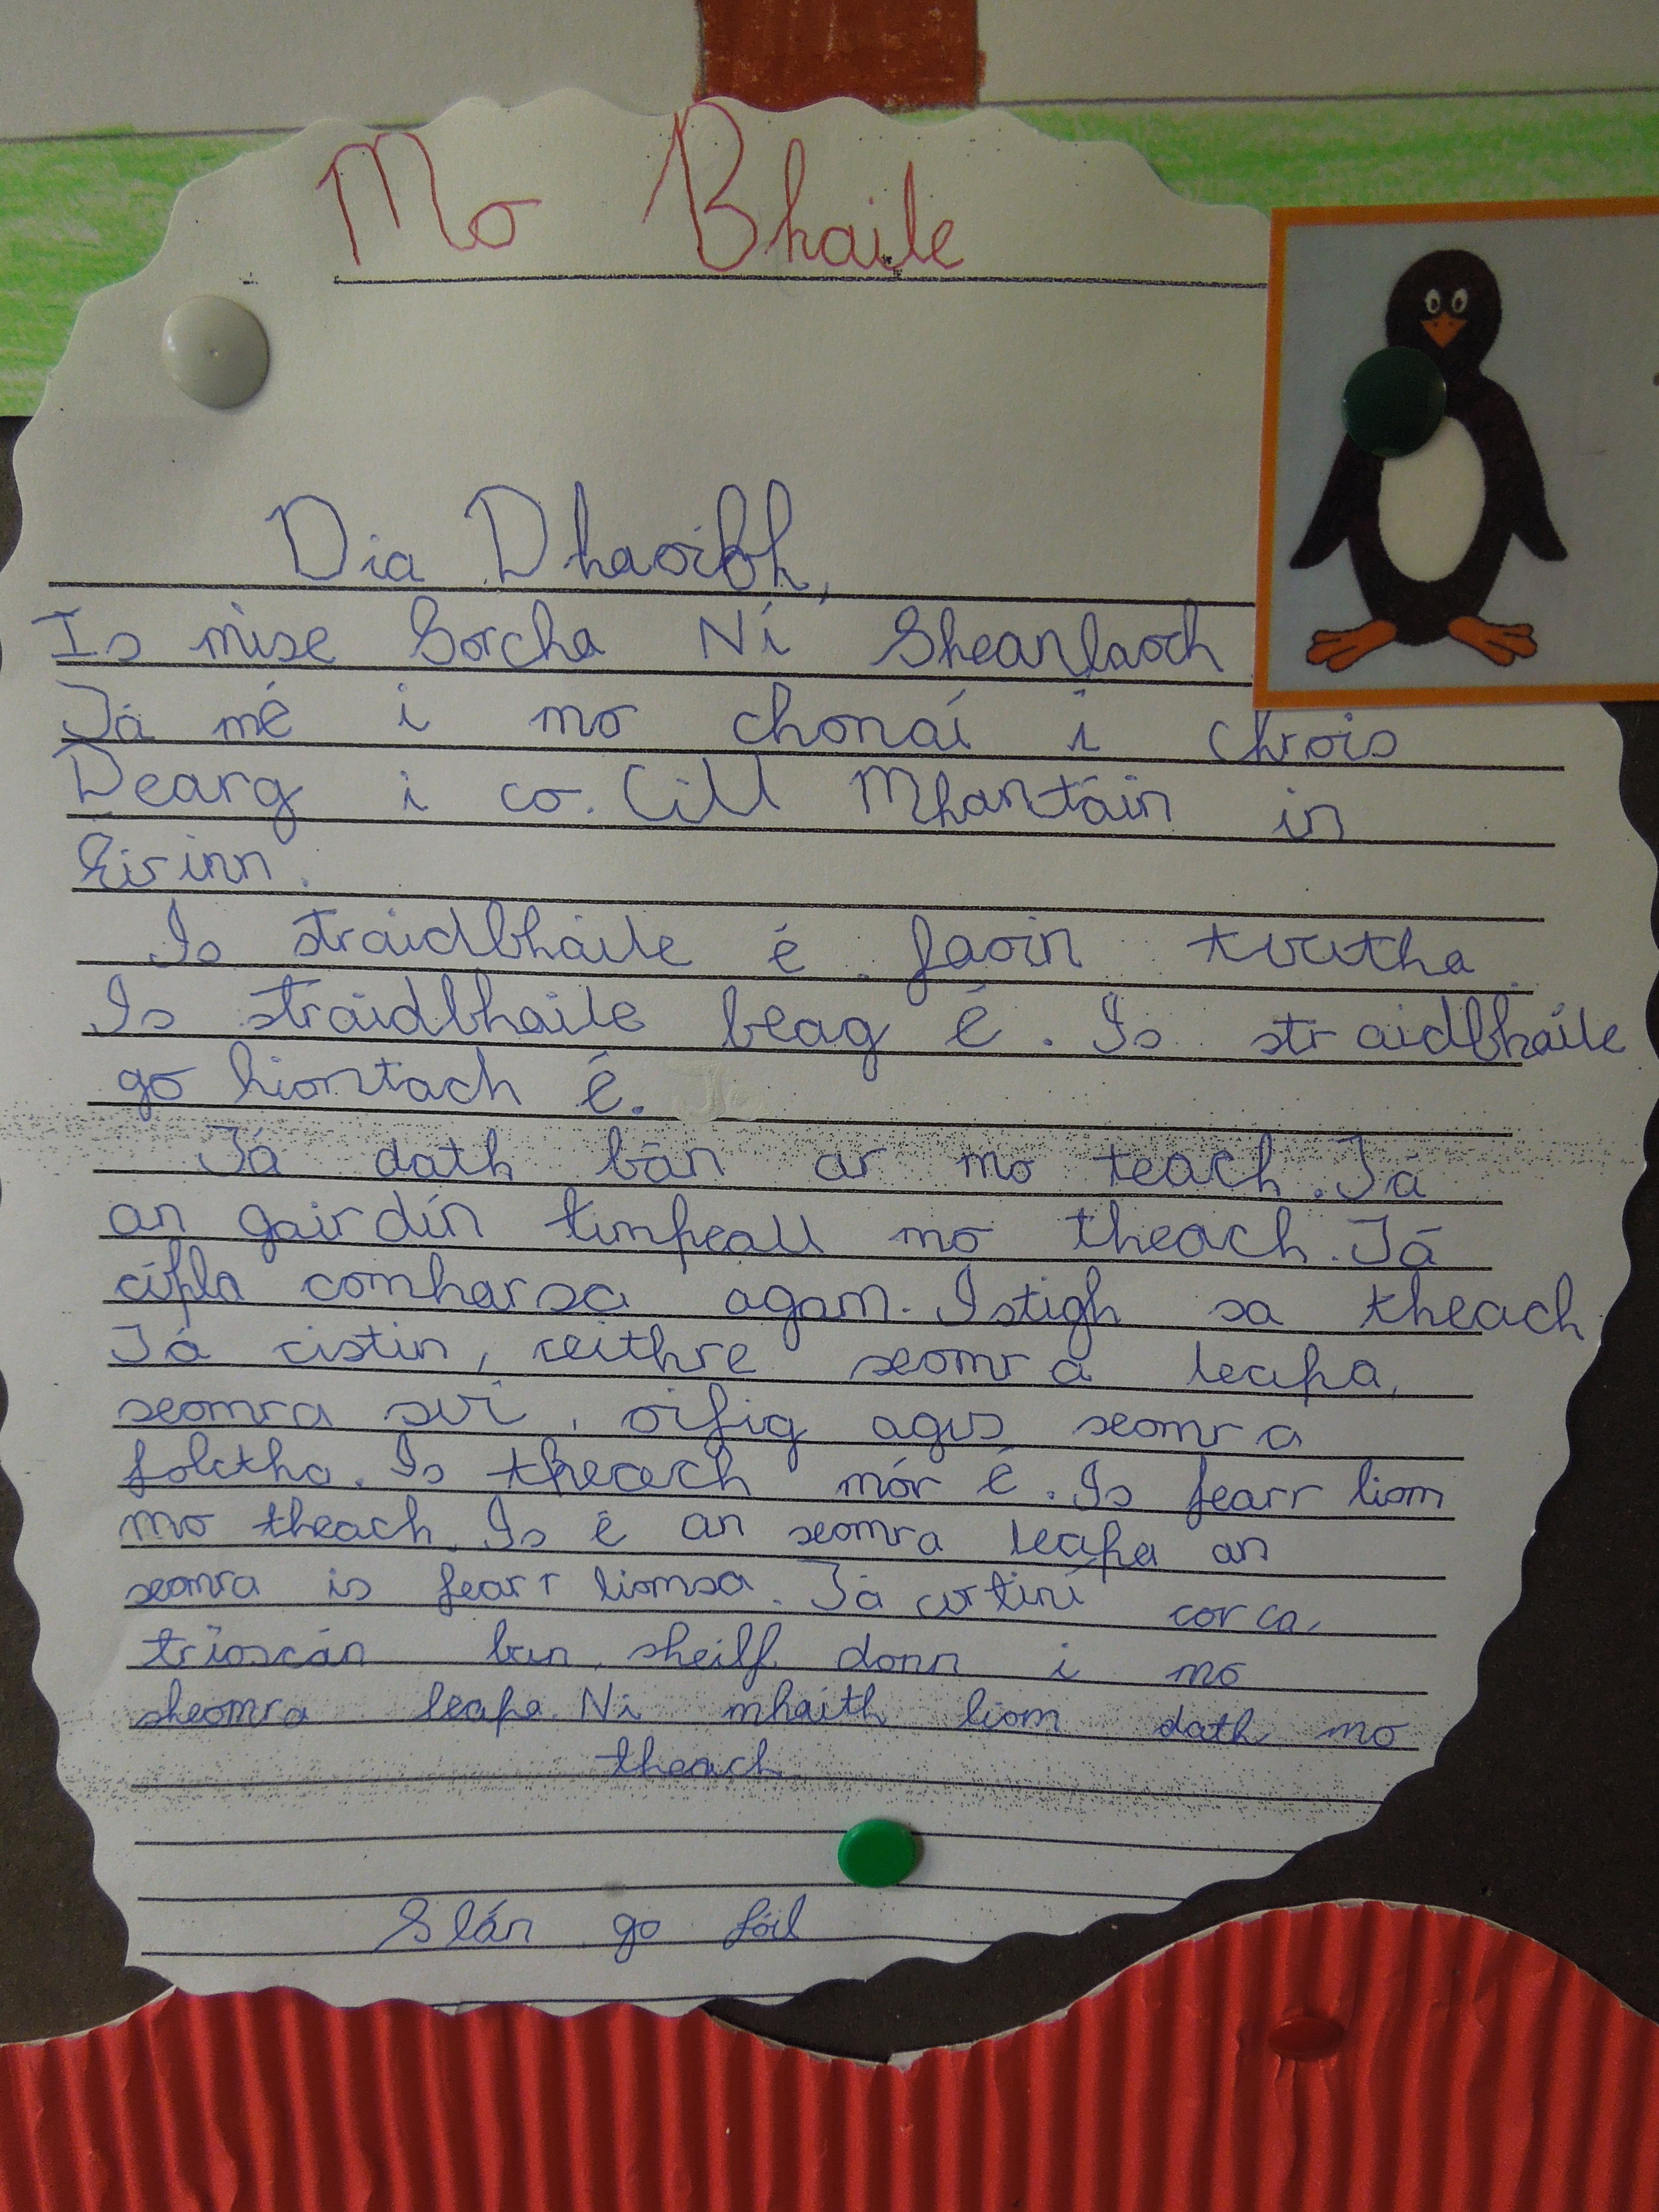 Mo Bhaile
Dia Dhaoibh,
Is mise Sorcha Ní Sheanlaoch
Tá mé i mo chonaí i Chrois
Dearg i co. Cill Mhantáin in
Éirinn.
Is sráidbhaile é faoin tuutha
Is sráidbhaile beag é. Is sráidbhaile
go hiontach é.
Tá dath bán ar mo teach. Tá
an gairdín timpeall mo theach. Tá
cúpla comharsa agam. Istigh sa theach
Tá cistin, ceithre seomra leapa,
seomra suí, oifig agus seomra
folctha. Is theach mór é. Is fearr liom
mo theach. Is é an seomra leapa an
seomra is fearr liomsa. Tá curtiní corca,
tríoscán ban, sheilf donn i mo
sheomra leapa. Ni mhaith liom dath mo
theach
Slán go fóil